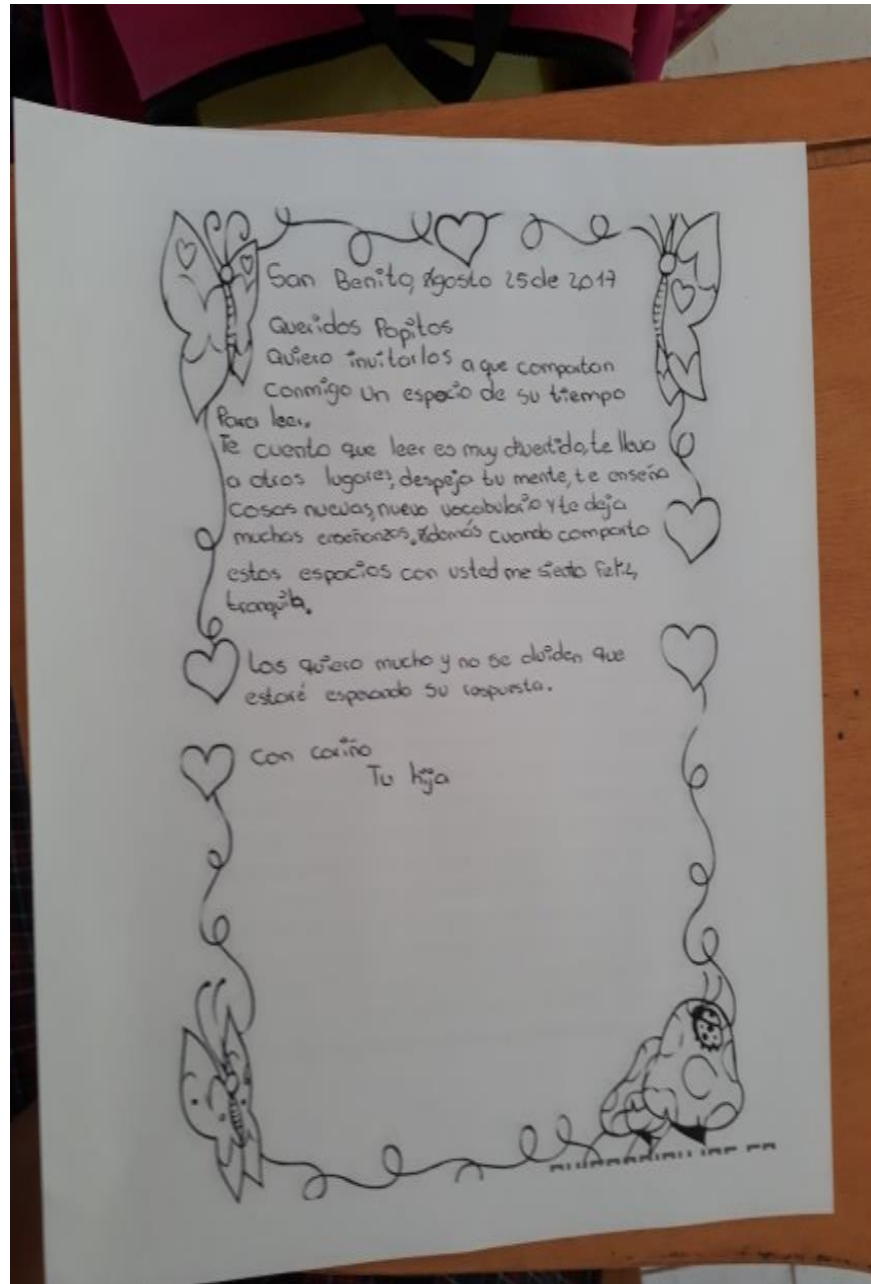 San Benito, Agosto 25 de 2017
Queridos Papitos
Quiero invitarlos a que compartan
conmigo un espacio de su tiempo
Para leer.
Te cuento que leer es muy divertido, te lleva
a otros lugares, despeja tu mente, te enseña
Cosas nuevas, nuevo vocabulario y te deja
muchas enseñanzas. Además cuando comparto
estos espacios con usted me siento feliz,
tranquila.
Los quiero mucho y no se olviden que
estaré esperando su respuesta.
Con cariño
Tu hija